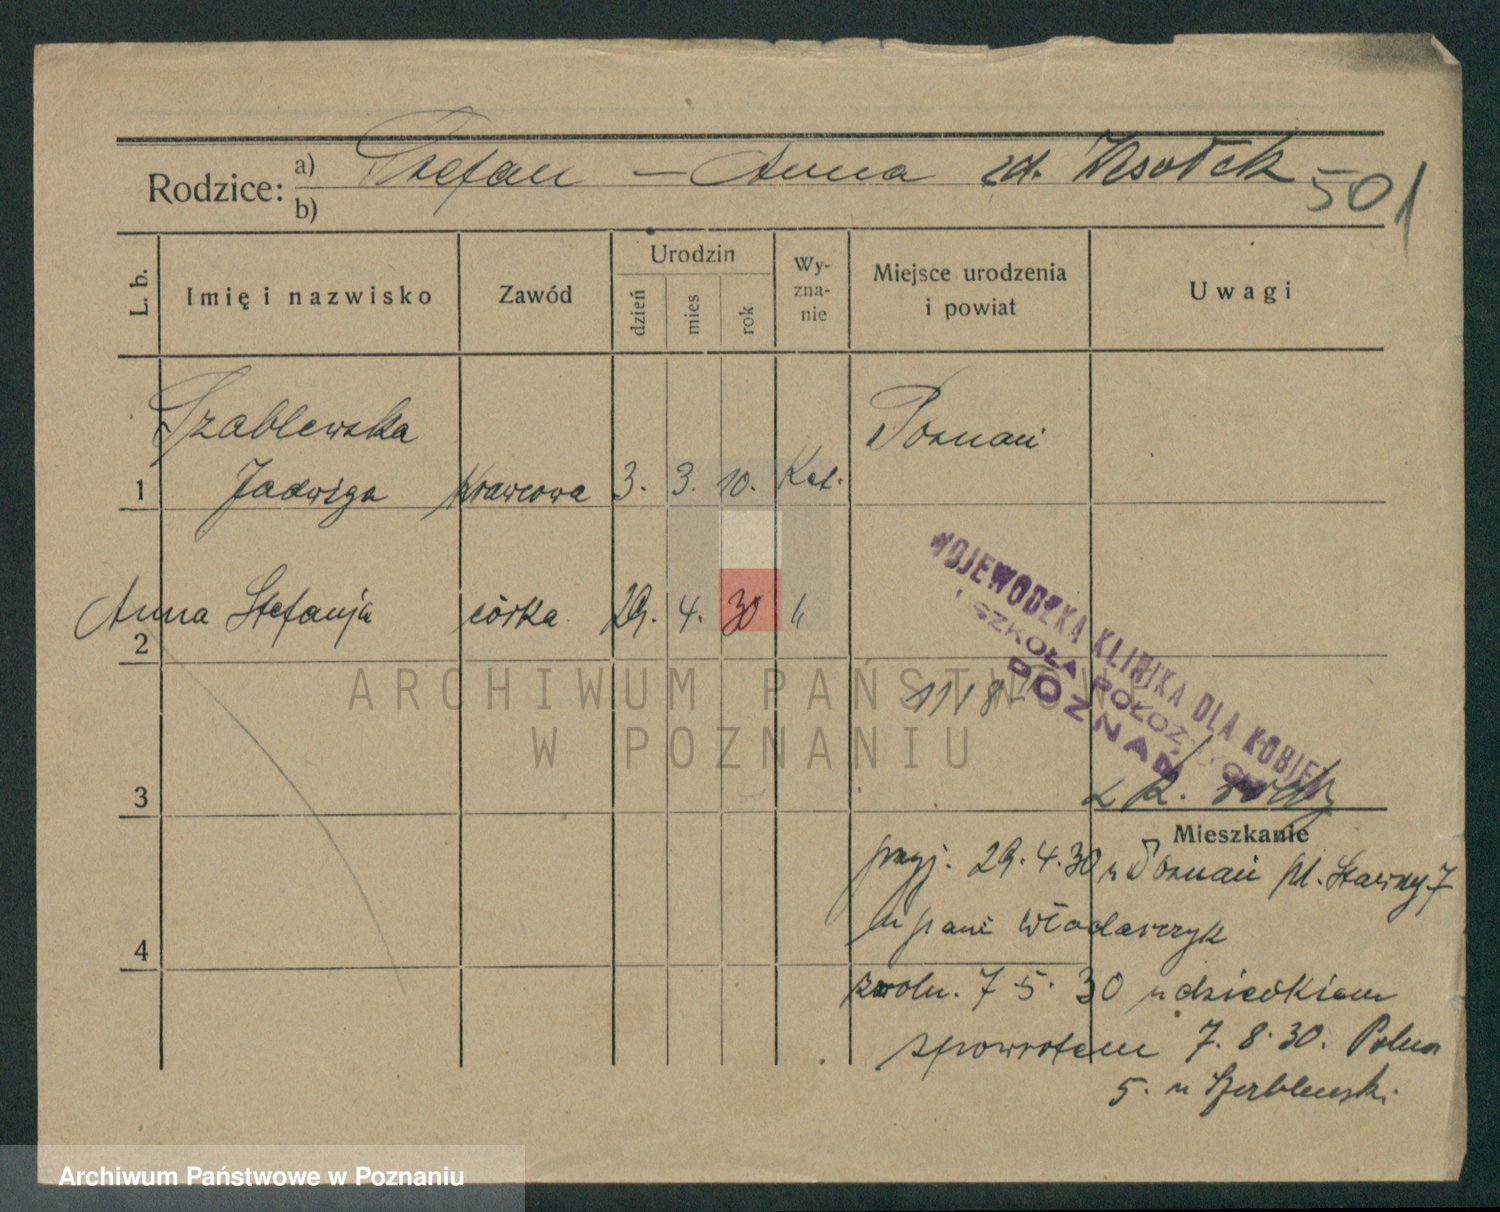 Rodzice: a) Stefan – Anna zd. Wsołek 501
b)
L. b. Imię i nazwisko Zawód Urodzin dzień mies rok Wy-zna-nie Miejsce urodzenia i powiat Uwagi
Szablewska Poznań
1 Jadwiga Krawcowa 3. 3. 10. Kat.
2 Anna Stefanja córka 29. 4. 30 "
WOJEWÓDZKA KLINIKA DLA KOBIET
I SZKOŁA POŁOŻNYCH
POZNAŃ
1118
3
Mieszkanie
przyj. 29.4.30 Poznań pl. 7
u pani Włodarczyk
4
zwoln. 7 5. 30 dzieckiem
spowrotem 7. 8. 30. Polna
5. u
ARCHIWUM PAŃSTWOWE
W POZNANIU
Archiwum Państwowe w Poznaniu